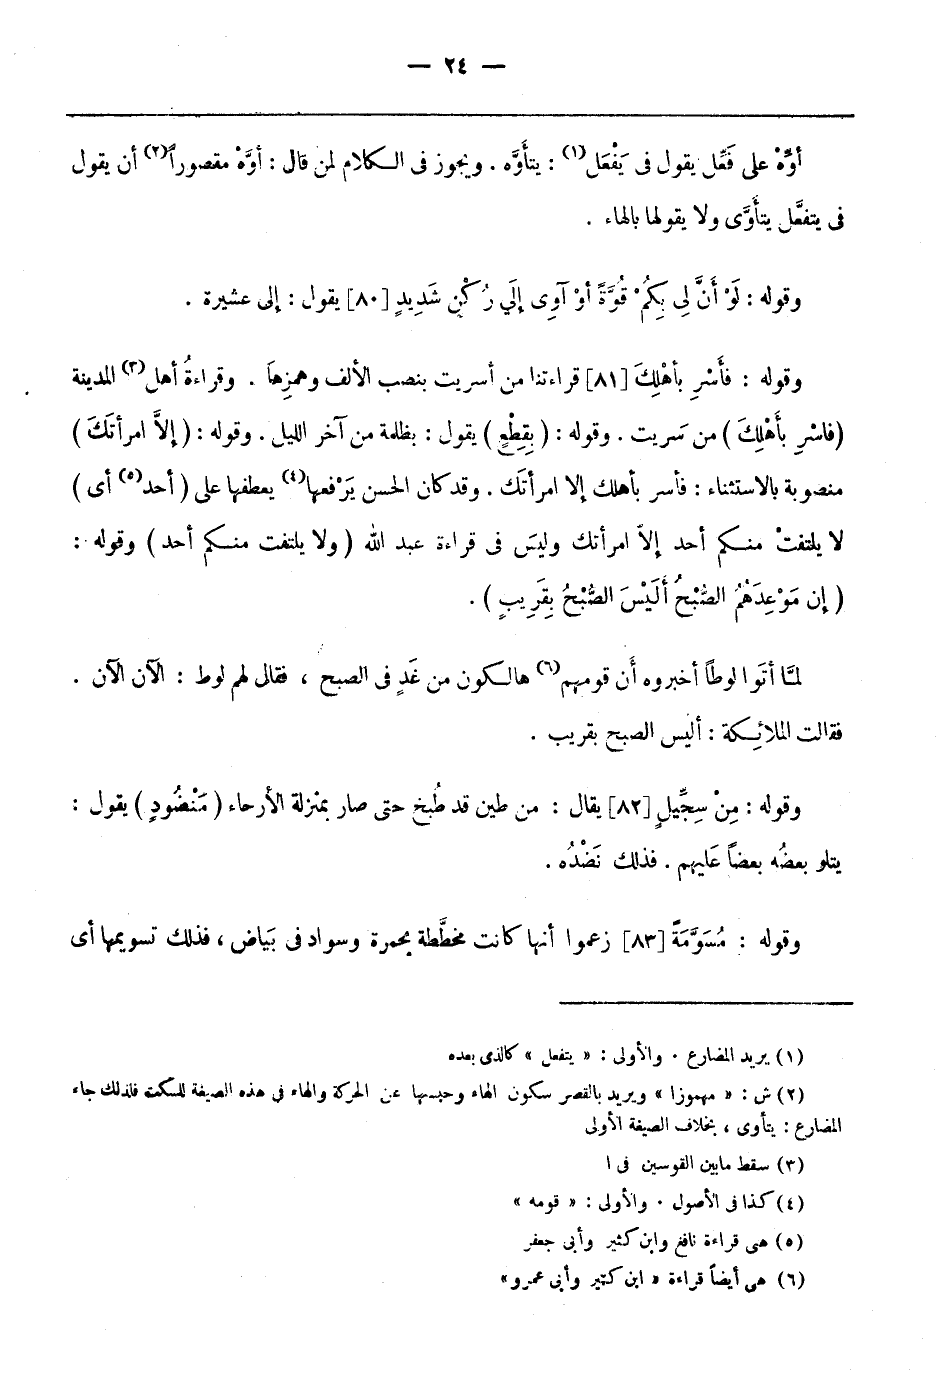 — ٢٤ —
أوِّهْ على فَعِّل يقول فى يَفْعَل(١) : يتأوَّه . ويجوز فى الكلام لمن قال : أوَّهْ مقصوراً(٢) أن يقول
فى يتفعَّل يتأوَّى ولا يقولها بالهاء .
وقوله : لَوْ أَنَّ لِى بِكُمْ قُوَّةً أوْ آوِى إلَي رُكْنٍ شَدِيدٍ [٨٠] يقول : إلى عشيرة .
وقوله : فأَسْرِ بأهْلِكَ [٨١] قراءتنا من أسريت بنصب الألف وهمزِهَا . وقراءةُ أهل(٣) المدينة
(فاسْرِ بأَهْلِكَ ) من سَريت . وقوله : ( بِقِطْعٍ ) يقول : بظلمة من آخر الليل . وقوله : ( إلاَّ امرأتَكَ )
منصوبة بالاستثناء : فأسر بأهلك إلا امرأتَك . وقدكان الحسن يَرْفعها(٤) يعطفها على ( أحد(٥) أى )
لا يلتفتْ منكم أحد إلاّ امرأتك وليسَ فى قراءة عبد الله ( ولا يلتفت منكم أحد ) وقوله :
( إن مَوْعِدَهُمُ الصُّبْحُ أَلَيْسَ الصُّبْحُ بِقَرِيبٍ ) .
لمَّا أتَوا لوطاً أخبروه أَن قومهم(٦) هالكون من غَدٍ فى الصبح ، فقالى لهم لوط : الآن الآن .
فقالت الملائِكة : أليس الصبح بقريب .
وقوله : مِنْ سِجِّيلٍ [٨٢] يقال : من طين قد طُبخ حتى صار بمنزلة الأرحاء ( مَنْضُودٍ ) يقول :
يتلو بعضُه بعضاً عَليهم . فذلك نَضْدُه .
وقوله : مُسَوَّمَةً [٨٣] زعموا أنها كانت مخطَّطة بحمرة وسواد فى بَياض ، فذلك تسويمها أى
(١) يريد المضارع . والأولى : « يتفعل » كالذى بعده
(٢) ش : « مهموزا » ويريد بالقصر سكون الهاء وحبسها عن الحركة والهاء فى هذه الصيغة للسكت فلذلك جاء
المضارع : يتأوى ، بخلاف الصيغة الأولى
(٣) سقط مابين القوسين فى ا
(٤) كذا فى الأصول . والأولى : « قومه »
(٥) هى قراءة نافع وابن كثير وأبى جعفر
(٦) هى أيضاً قراءة « ابن كثير وأبى عمرو»